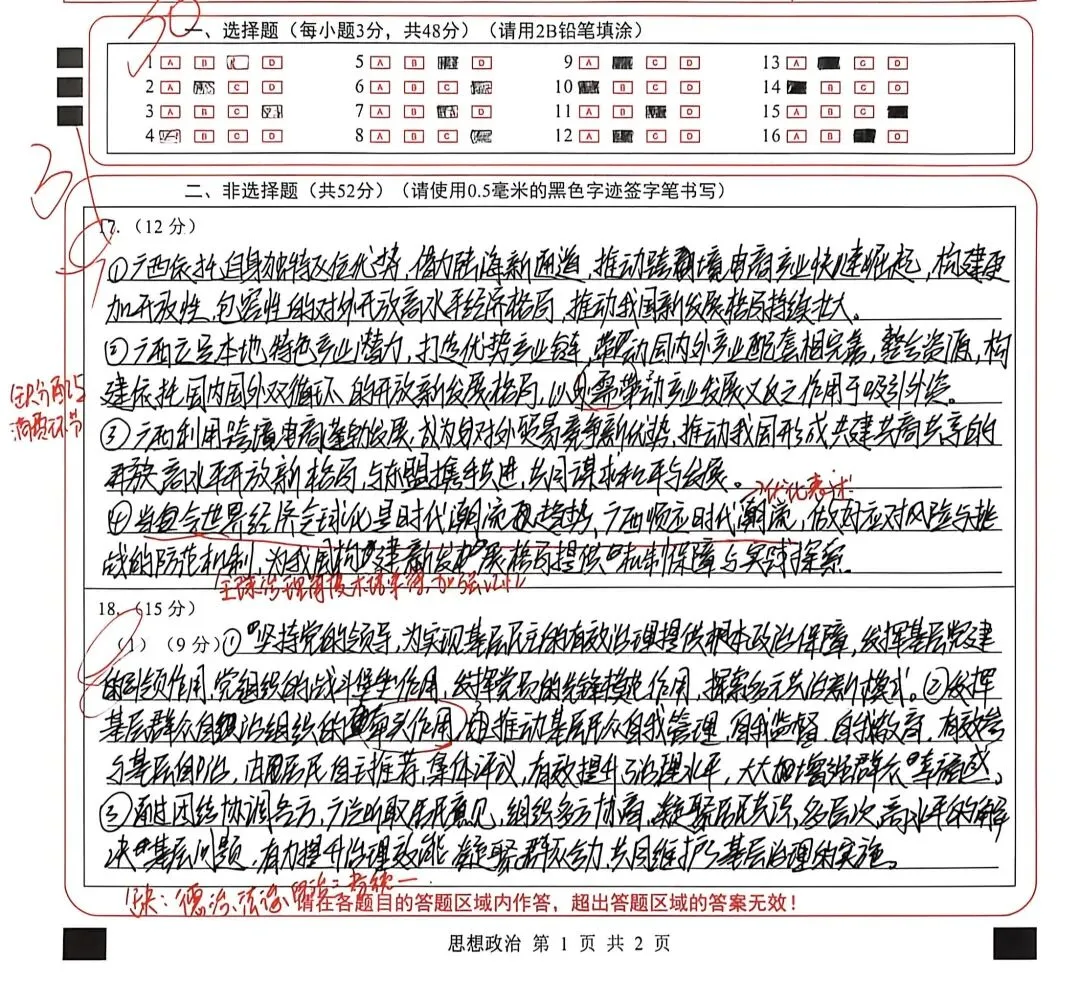 30
一、选择题（每小题3分，共48分）（请用2B铅笔填涂）
1 A B C D 5 A B C D 9 A B C D 13 A B C D
2 A B C D 6 A B C D 10 A B C D 14 A B C D
3 A B C D 7 A B C D 11 A B C D 15 A B C D
4 A B C D 8 A B C D 12 A B C D 16 A B C D
二、非选择题（共52分）（请使用0.5毫米的黑色字迹签字笔书写）
17.（12分）
①广西依托自身独特区位优势，借力陆海新通道，推动跨境电商产业快速崛起，构建更
加开放性、包容性的对外开放高水平经济格局，推动我国新发展格局持续壮大。
②广西立足本地特色产业潜力，打造优势产业链，带动国内外产业配套相完善，整合资源，构
建依托国内国外双循环的开放新发展格局，以外需带动产业发展又反之作用于吸引外资。
缺分配与
消费环节
③广西利用跨境电商蓬勃发展，成为对外贸易竞争新优势，推动我国形成共建共商共享的
开放高水平开放新格局，与东盟携手共进，共同谋求和平与发展。
优化表述
④当今世界经济全球化是时代潮流趋势，广西顺应时代潮流，做好应对风险与挑
战的防范机制，为我国构建新发展格局提供机制保障与实践探索。
18.（15分）
（1）（9分）①坚持党的领导，为实现基层民主的有效治理提供根本政治保障，发挥基层党建
的引领作用，党组织的战斗堡垒作用，发挥党员的先锋模范作用，探索多元共治新模式。②发挥
基层群众自治组织的作用，推动基层民众自我管理、自我监督、自我教育，有效参
与基层自治，由居民自主推荐，集体评议，有效提升了治理水平，大大增强群众幸福感。
③通过团结协调各方，广泛听取居民意见，组织多方协商，凝聚居民共识，多层次、高水平的解
决基层问题，有力提升治理效能，凝聚群众合力，共同维护基层治理的实施。
缺：德治、法治、自治三者统一
请在各题目的答题区域内作答，超出答题区域的答案无效！
思想政治 第 1 页 共 2 页